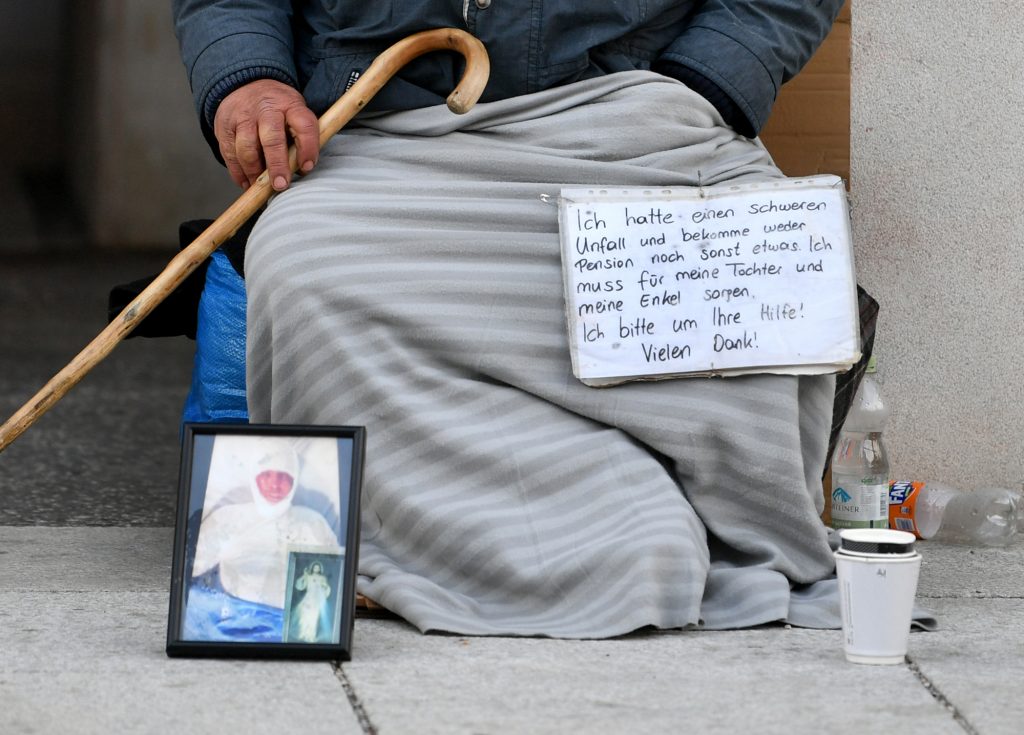 Ich hatte einen schweren
Unfall und bekomme weder
Pension noch sonst etwas. Ich
muss für meine Tochter und
meine Enkel sorgen.
Ich bitte um Ihre Hilfe!
Vielen Dank!
FAN